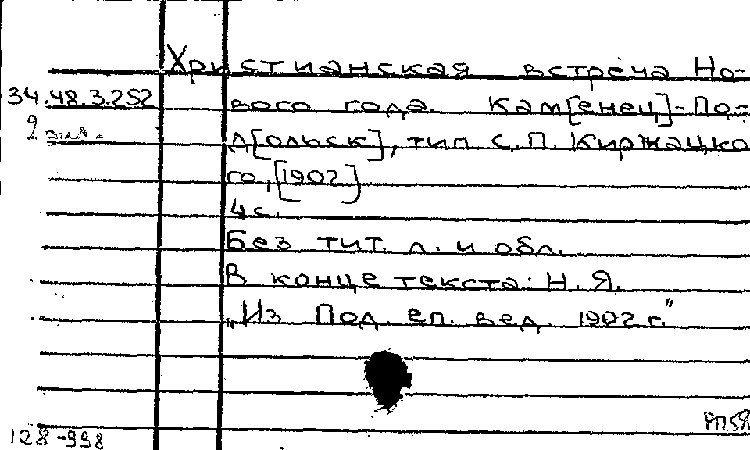 Христианская встреча Но-
34.48.3.252 вого года. Кам[енец]-По-
2 экз. д[ольск], тип. С.П. Киржацко
го, [1902]
4 с.
Без тит. л. и обл.
В конце текста: Н. Я.
„Из Под. еп. вед. 1902 г."
128-998